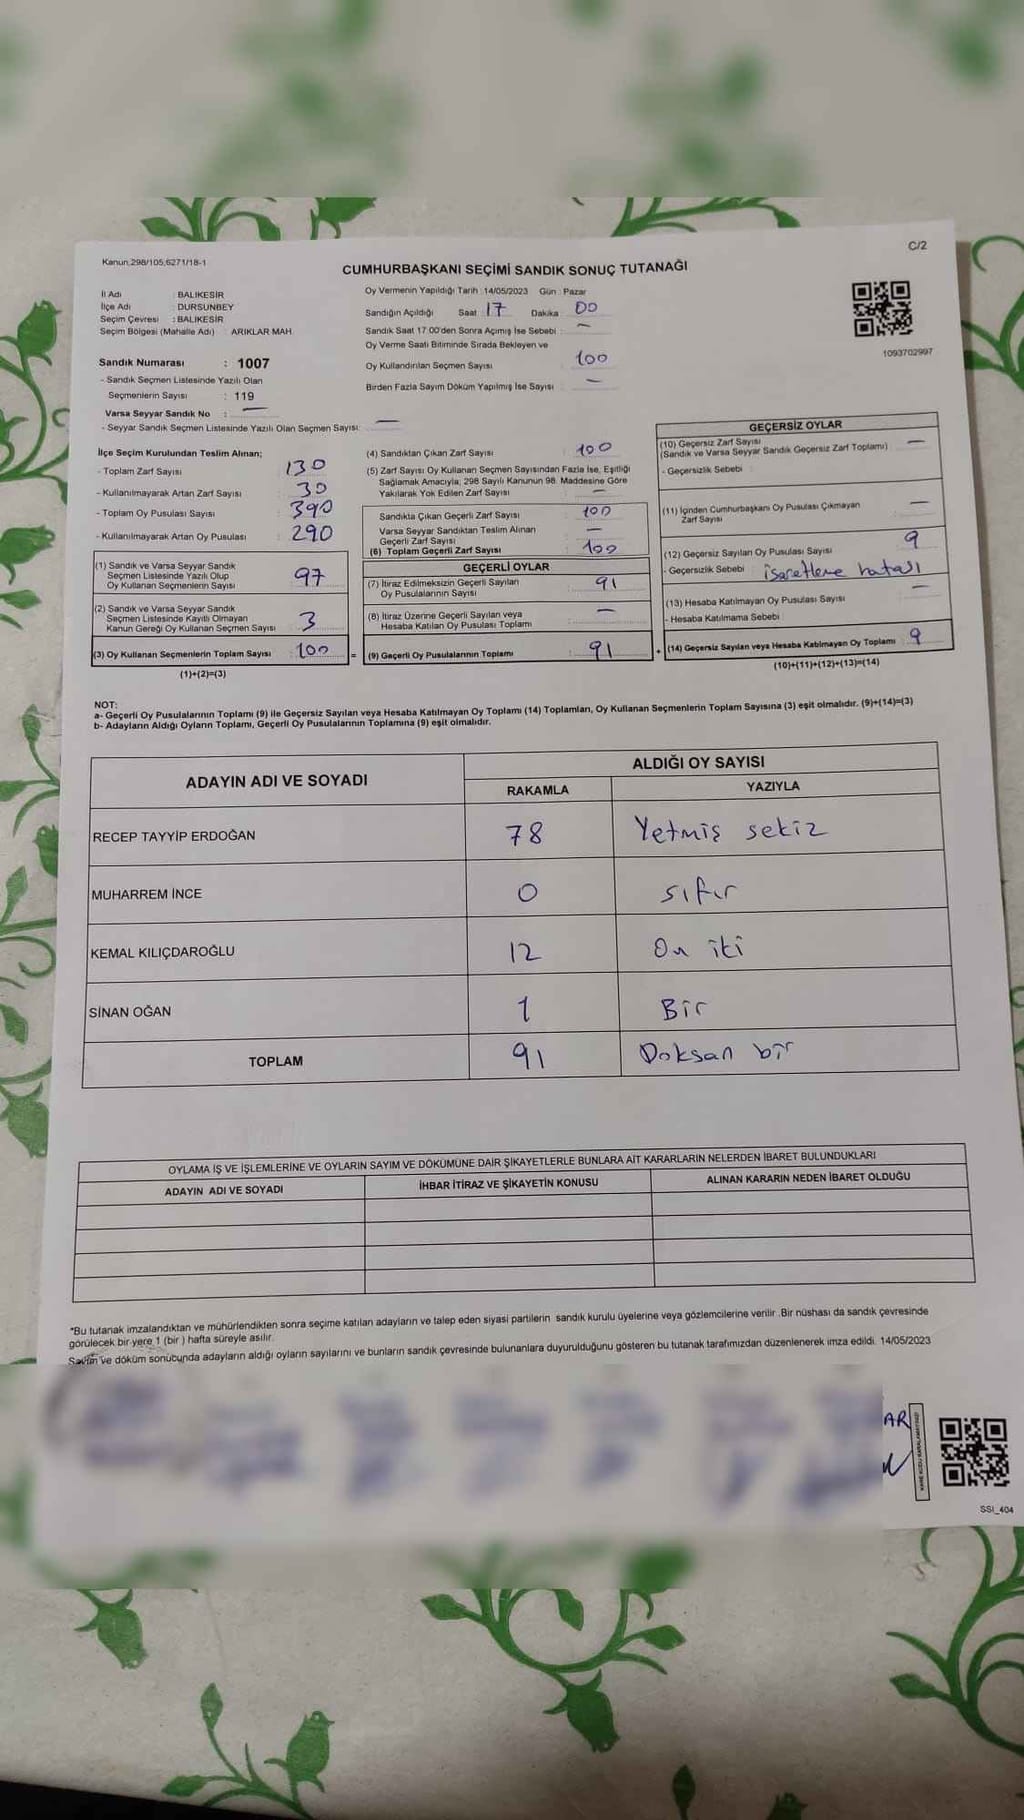 Kanun,298/105,6271/18-1
C/2
CUMHURBAŞKANI SEÇİMİ SANDIK SONUÇ TUTANAĞI
İl Adı : BALIKESİR
İlçe Adı : DURSUNBEY
Seçim Çevresi : BALIKESİR
Seçim Bölgesi (Mahalle Adı) : ARIKLAR MAH.
Oy Vermenin Yapıldığı Tarih :14/05/2023 Gün : Pazar
Sandığın Açıldığı Saat : 17 Dakika : 00
Sandık Saat 17:00'den Sonra Açımış İse Sebebi : —
Oy Verme Saati Bitiminde Sırada Bekleyen ve
Oy Kullandırılan Seçmen Sayısı : 100
Birden Fazla Sayım Döküm Yapılmış İse Sayısı : —
1093702997
Sandık Numarası : 1007
- Sandık Seçmen Listesinde Yazılı Olan
Seçmenlerin Sayısı : 119
Varsa Seyyar Sandık No : —
- Seyyar Sandık Seçmen Listesinde Yazılı Olan Seçmen Sayısı: —
İlçe Seçim Kurulundan Teslim Alınan;
- Toplam Zarf Sayısı : 130
- Kullanılmayarak Artan Zarf Sayısı : 30
- Toplam Oy Pusulası Sayısı : 390
- Kullanılmayarak Artan Oy Pusulası : 290
(1) Sandık ve Varsa Seyyar Sandık
Seçmen Listesinde Yazılı Olup
Oy Kullanan Seçmenlerin Sayısı : 97
(2) Sandık ve Varsa Seyyar Sandık
Seçmen Listesinde Kayıtlı Olmayan
Kanun Gereği Oy Kullanan Seçmen Sayısı : 3
(3) Oy Kullanan Seçmenlerin Toplam Sayısı : 100 =
(1)+(2)=(3)
(4) Sandıktan Çıkan Zarf Sayısı : 100
(5) Zarf Sayısı Oy Kullanan Seçmen Sayısından Fazla İse, Eşitliği
Sağlamak Amacıyla, 298 Sayılı Kanunun 98. Maddesine Göre
Yakılarak Yok Edilen Zarf Sayısı : —
Sandıkta Çıkan Geçerli Zarf Sayısı : 100
Varsa Seyyar Sandıktan Teslim Alınan
Geçerli Zarf Sayısı : —
(6) Toplam Geçerli Zarf Sayısı : 100
GEÇERLİ OYLAR
(7) İtiraz Edilmeksizin Geçerli Sayılan
Oy Pusulalarının Sayısı : 91
(8) İtiraz Üzerine Geçerli Sayılan veya
Hesaba Katılan Oy Pusulası Toplamı : —
(9) Geçerli Oy Pusulalarının Toplamı : 91 +
GEÇERSİZ OYLAR
(10) Geçersiz Zarf Sayısı
(Sandık ve Varsa Seyyar Sandık Geçersiz Zarf Toplamı) : —
- Geçersizlik Sebebi :
(11) İçinden Cumhurbaşkanı Oy Pusulası Çıkmayan
Zarf Sayısı : —
(12) Geçersiz Sayılan Oy Pusulası Sayısı : 9
- Geçersizlik Sebebi : işaretleme hatası
(13) Hesaba Katılmayan Oy Pusulası Sayısı : —
- Hesaba Katılmama Sebebi :
(14) Geçersiz Sayılan veya Hesaba Katılmayan Oy Toplamı : 9
(10)+(11)+(12)+(13)=(14)
NOT:
a- Geçerli Oy Pusulalarının Toplamı (9) ile Geçersiz Sayılan veya Hesaba Katılmayan Oy Toplamı (14) Toplamları, Oy Kullanan Seçmenlerin Toplam Sayısına (3) eşit olmalıdır. (9)+(14)=(3)
b- Adayların Aldığı Oyların Toplamı, Geçerli Oy Pusulalarının Toplamına (9) eşit olmalıdır.
ADAYIN ADI VE SOYADI ALDIĞI OY SAYISI
RAKAMLA YAZIYLA
RECEP TAYYİP ERDOĞAN 78 Yetmiş sekiz
MUHARREM İNCE 0 sıfır
KEMAL KILIÇDAROĞLU 12 On iki
SİNAN OĞAN 1 Bir
TOPLAM 91 Doksan bir
OYLAMA İŞ VE İŞLEMLERİNE VE OYLARIN SAYIM VE DÖKÜMÜNE DAİR ŞİKAYETLERLE BUNLARA AİT KARARLARIN NELERDEN İBARET BULUNDUKLARI
ADAYIN ADI VE SOYADI İHBAR İTİRAZ VE ŞİKAYETİN KONUSU ALINAN KARARIN NEDEN İBARET OLDUĞU
*Bu tutanak imzalandıktan ve mühürlendikten sonra seçime katılan adayların ve talep eden siyasi partilerin sandık kurulu üyelerine veya gözlemcilerine verilir .Bir nüshası da sandık çevresinde
görülecek bir yere 1 (bir ) hafta süreyle asılır.
Sayım ve döküm sonucunda adayların aldığı oyların sayılarını ve bunların sandık çevresinde bulunanlara duyurulduğunu gösteren bu tutanak tarafımızdan düzenlenerek imza edildi. 14/05/2023
AR
SSI_404